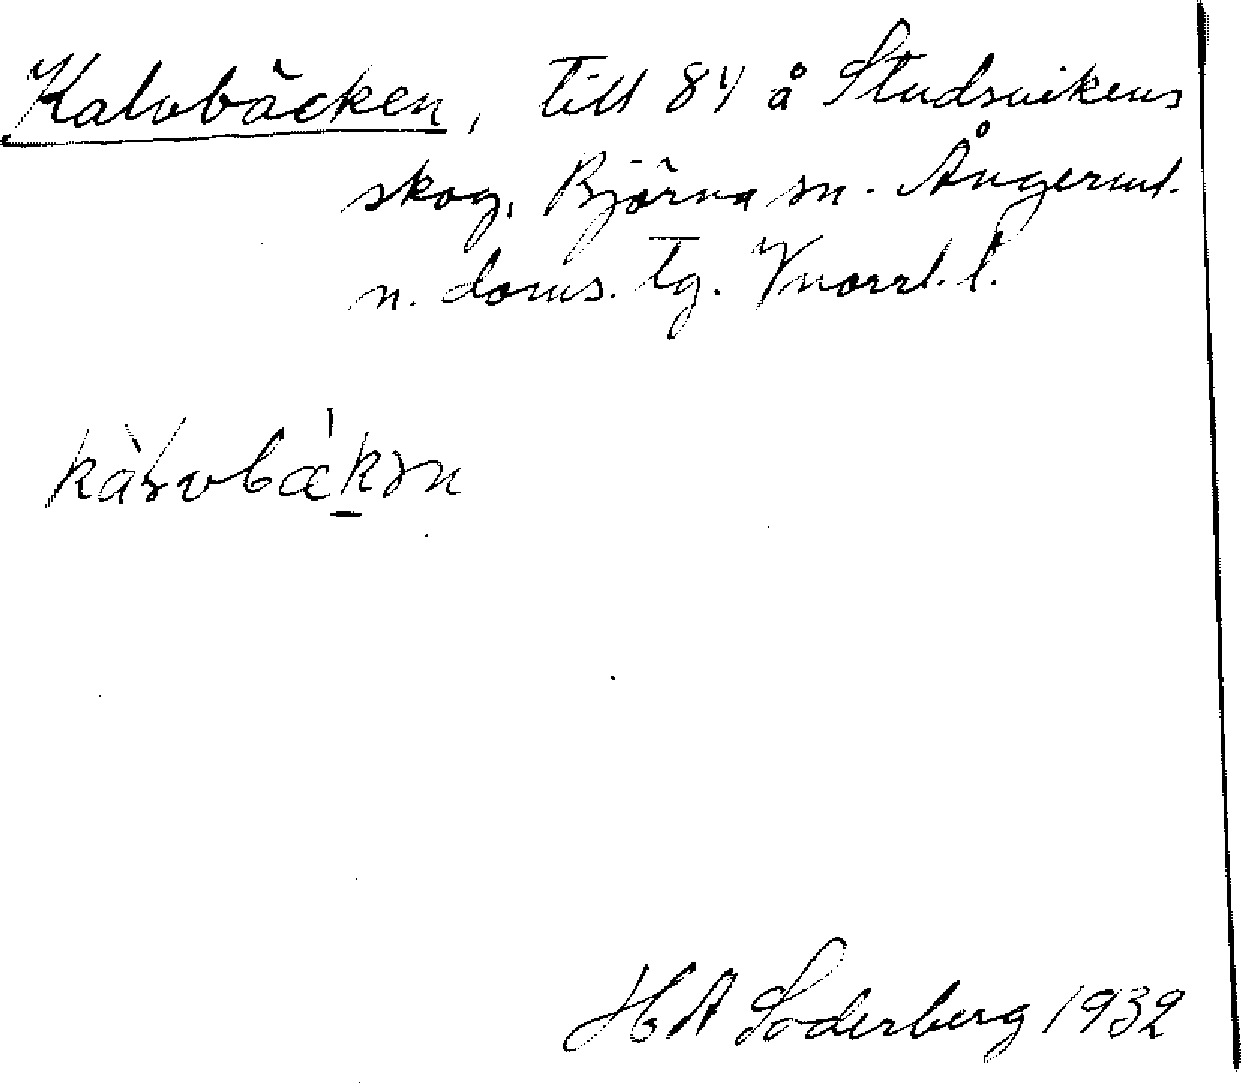 Kalvbäcken, till 84 å Studsvikens
skog, Björna sn. Ångerml.
n. doms. tg. Vnorrl. l.
kàl̥vbæ̀kən
H A Söderberg 1932